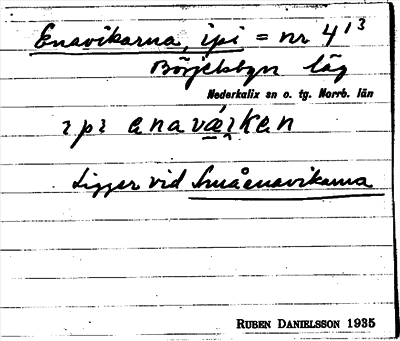 Enavikarna, ipi = nr 4¹³
Börjelsbyn läg
Nederkalix sn o. tg. Norrb. län
ıpı enaværkan
Ligger vid Småenavikarna
RUBEN DANIELSSON 1935